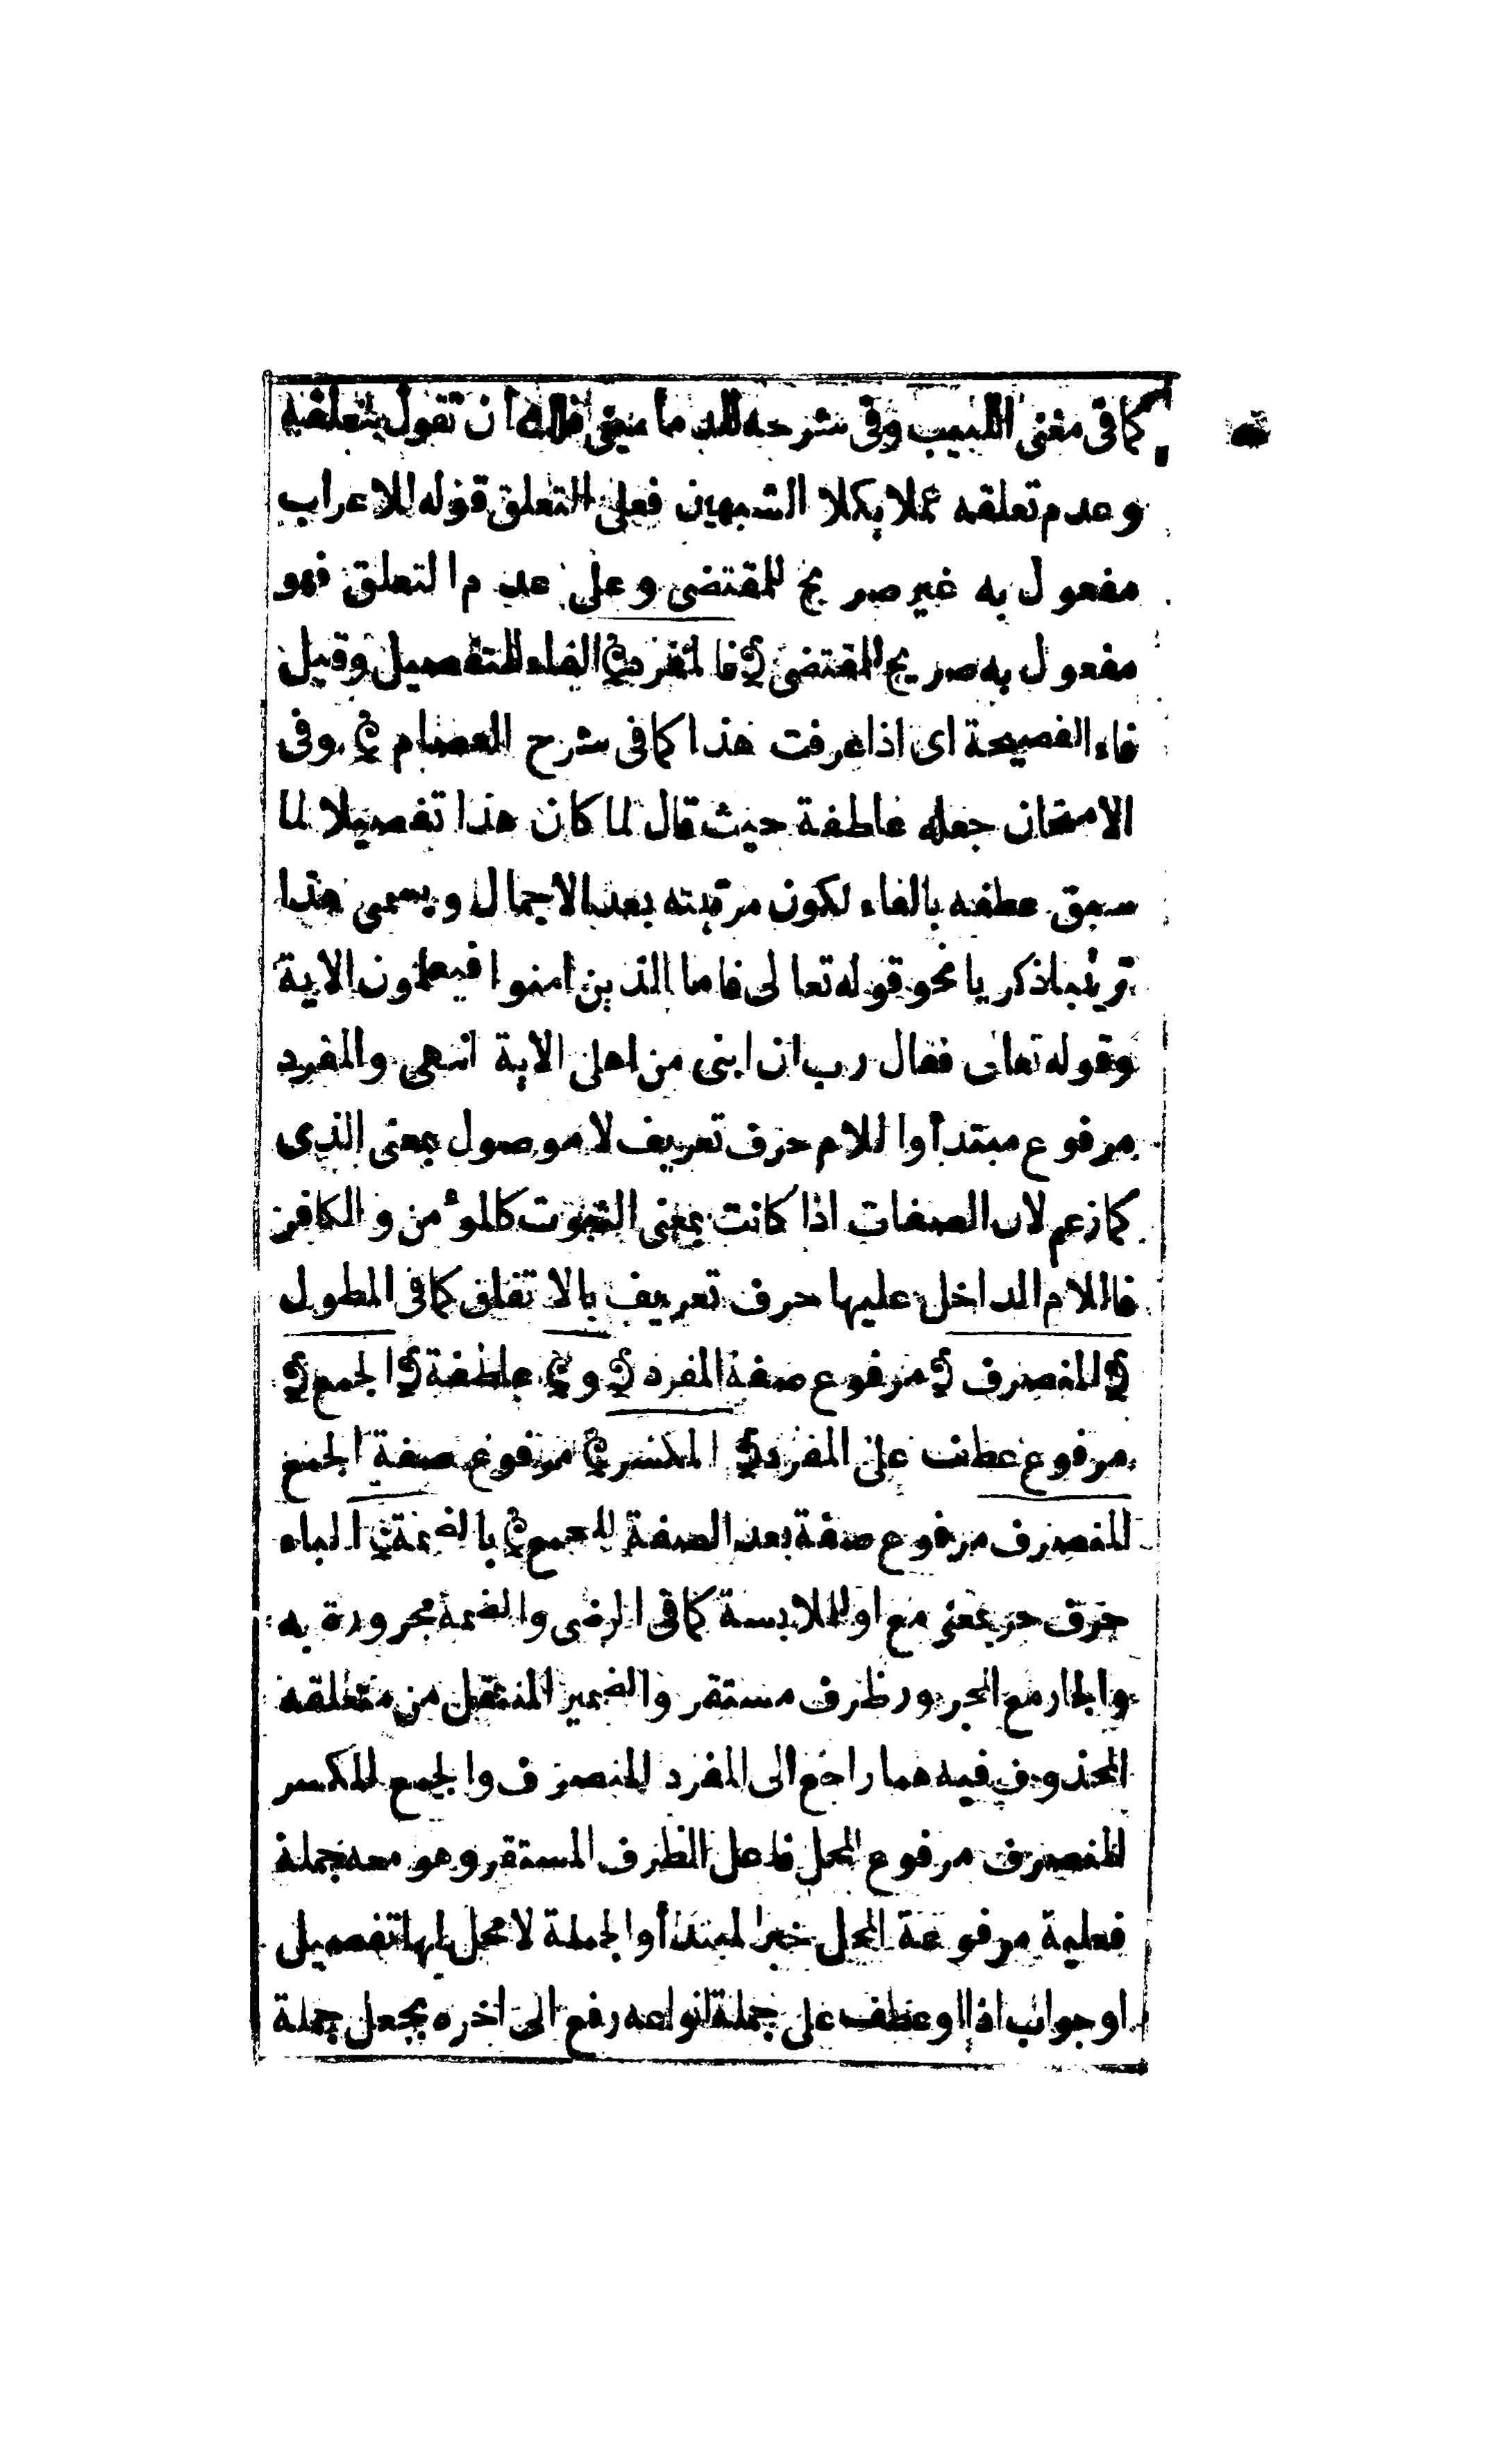 كما فى مغنى اللبيب وفى شرحه للدمامينى فلك ان تقول بتعلقه
وعدم تعلقه عملا بكلا الشبهين فعلى التعلق قوله للاعراب
مفعول به غير صريح للمقتضى وعلى عدم التعلق فهو
مفعول به صريح للمقتضى ﴿ فالمفرد ﴾ الفاء للتفصيل وقيل
فاء الفصيحة اى اذا عرفت هذا كما فى شرح العصام ﴾ وفى
الامتحان جعله عاطفة حيث قال لما كان هذا تفصيلا لما
سبق عطفه بالفاء لكون مرتبته بعد الاجمال ويسمى هذا
ترتيبا ذكريا نحو قوله تعالى فاما الذين امنوا فيعلمون الاية
وقوله تعالى فقال رب ان ابنى من اهلى الاية انتهى والمفرد
مرفوع مبتدأ واللام حرف تعريف لا موصول بمعنى الذى
كما زعم لان الصفات اذا كانت بمعنى الثبوت كالمؤمن والكافر
فاللام الداخل عليها حرف تعريف بالاتفاق كما فى المطول
﴿ المنصرف ﴾ مرفوع صفة المفرد ﴿ و ﴾ عاطفة ﴿ الجمع ﴾
مرفوع عطف على المفرد ﴿ المكسر ﴾ مرفوع صفة الجمع
المنصرف مرفوع صفة بعد الصفة للجمع ﴾ بالضمة ﴿ الباء
حرف جر بمعنى مع او للملابسة كما فى الرضى والضمة مجرورة به
والجار مع المجرور ظرف مستقر والضمير المنتقل من متعلقه
المحذوف فيه هما راجع الى المفرد المنصرف والجمع المكسر
المنصرف مرفوع المحل فاعل الظرف المستقر وهو معه جملة
فعلية مرفوعة المحل خبر المبتدأ والجملة لا محل لها تفصيل
او جواب اذا او عطف على جملة انواعه رفع الى اخره بجعل جملة